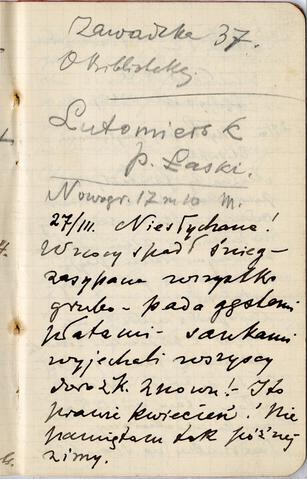 Zawadzka 37.
O Bibliotekę.
Lutomiersk
p. Łaski.
Nowogr. 17 m 10 m.
27/III. Niesłychane!
W nocy spadł śnieg -
zasypane wszystko
grubo - pada gęstemi
płatami - sankami
wyjechali wszyscy
dorożk. znown! I to
prawie kwiecień! Nie
pamiętam tak późnej
zimy.